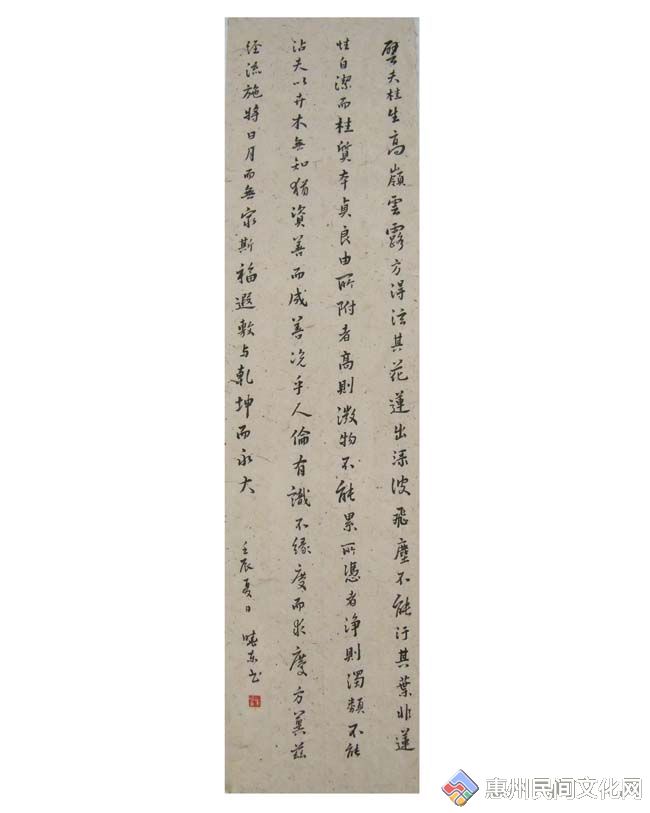 譬夫桂生高嶺雲露方得泫其花蓮出淥波飛塵不能汙其葉非蓮
性自潔而桂質本貞良由所附者高則微物不能累所憑者淨則濁類不能
沾夫以卉木無知猶資善而成善況乎人倫有識不緣慶而求慶方冀茲
經流施將日月而無窮斯福遐敷與乾坤而永大
壬辰夏日
东书
惠州民间文化网